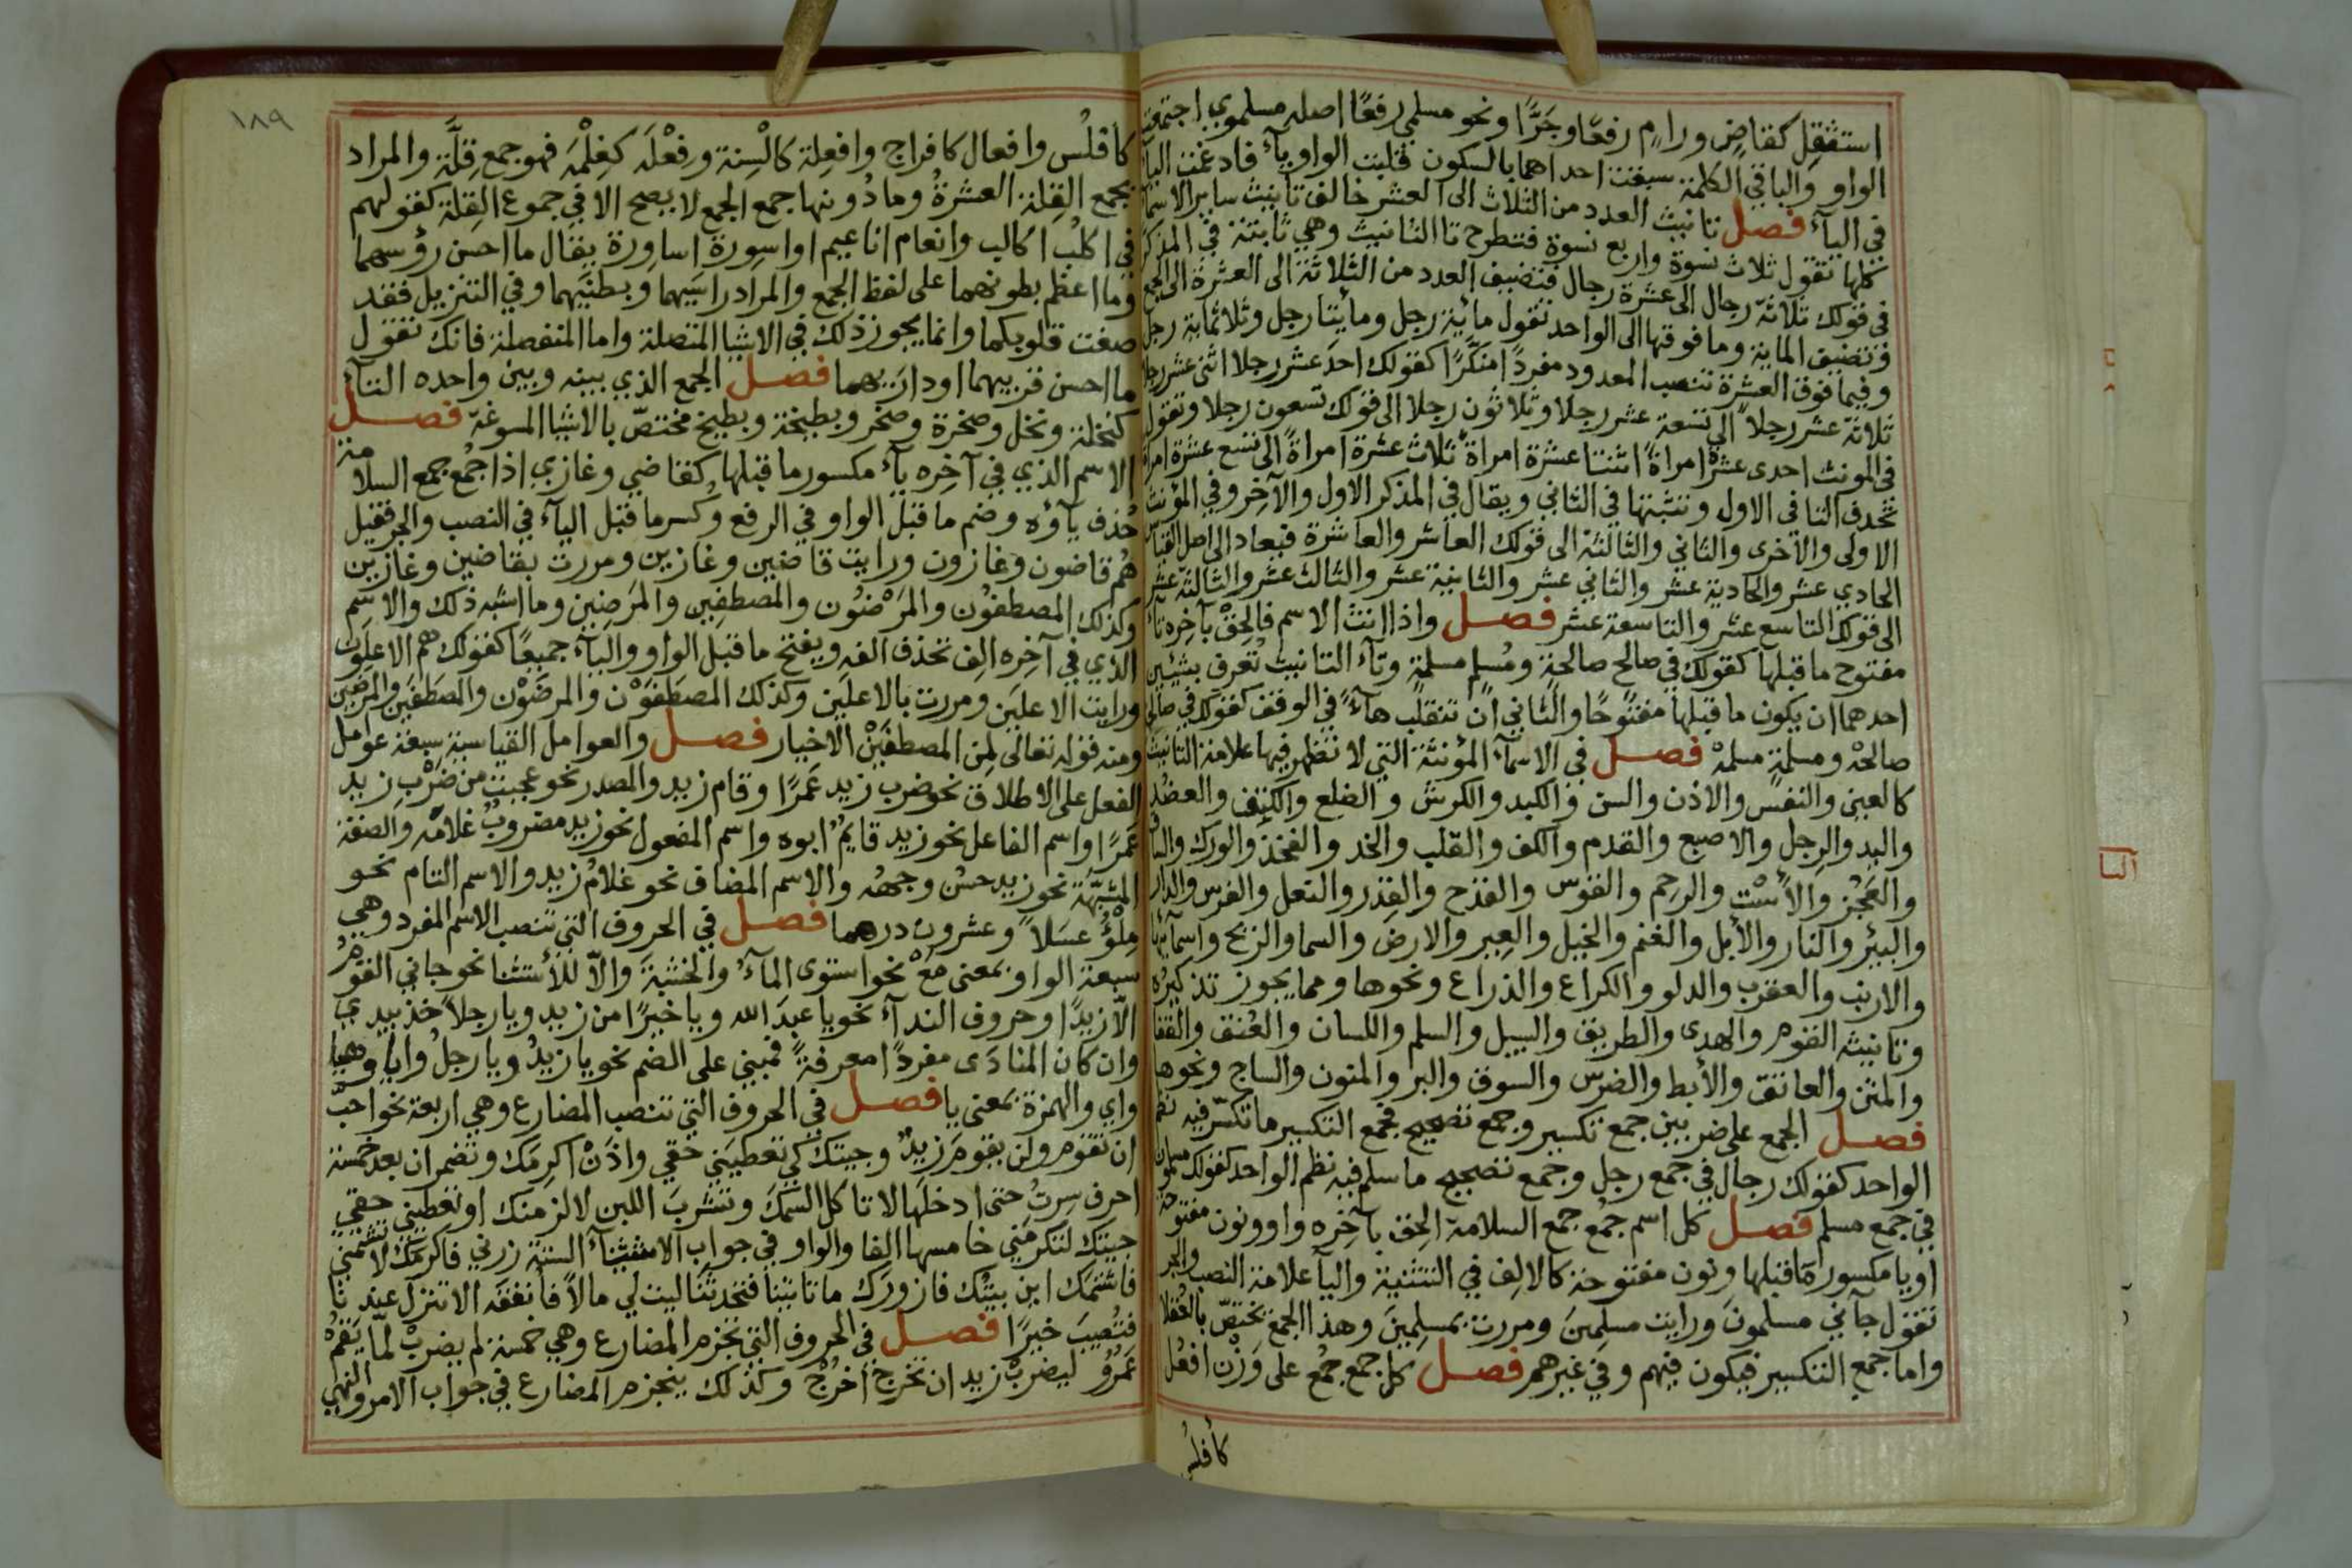 استثقل كقاضٍ ورامٍ رفعًا وجرًّا ونحو مسلمي رفعًا اصله مسلموي اجتمعت
الواو والياء في الكلمة سبقت احداهما بالسكون قلبت الواو ياء فادغمت الياء
في الياء فصل تانيث العدد من الثلاث الى العشر خالف تانيث ساير الاسماء
كلها تقول ثلاث نسوة واربع نسوة فتطرح تا التانيث وهي ثابتة في المذكر
في قولك ثلاثة رجال الى عشرة رجال فتضيف العدد من الثلاثة الى العشرة الى الجمع
وتضيف الماية وما فوقها الى الواحد تقول ماية رجل ومايتا رجل وثلاثماية رجل
وفيما فوق العشرة تنصب المعدود مفردًا منكّرًا كقولك احد عشر رجلا اثنى عشر رجلا
ثلاثة عشر رجلاً الى تسعة عشر رجلا وثلاثون رجلا الى قولك تسعون رجلا وتقول
في المونث احدى عشرة امراةً اثنتا عشرة امراة ثلاث عشرة امراةً الى تسع عشرة امراة
تحذف التا في الاول وتثبتها في الثاني ويقال في المذكر الاول والآخر وفي المؤنث
الاولى والاخرى والثاني والثالثة الى قولك العاشر والعاشرة فيعاد الى اصل القياس
الحادي عشر والحادية عشر والثاني عشر والثانية عشر والثالث عشر والثالثة عشر
الى قولك التاسع عشر والتاسعة عشر فصل واذا انث الاسم فالحق بآخره تاء
مفتوح ما قبلها كقولك في صالح صالحة ومسلم مسلمة وتاء التانيث تُعرف بشيئين
احدهما ان يكون ما قبلها مفتوحًا والثاني ان تنقلب هاءً في الوقف كقولك في صالحة
صالحهْ ومسلمةٍ مسلمهْ فصل في الاسماء المؤنثة التي لا تظهر فيها علامة التانيث
كالعين والنفس والاذن والسن والكبد والكرش والضلع والكتف والعضد
واليد والرجل والاصبع والقدم والكف والقلب والخد والفخذ والورك والساق
والعجز والأست والرحم والقوس والقدح والقدر والنعل والفرس والدار
والبئر والنار والأبل والغنم والخيل والعير والارض والسما والريح واسمائها
والارنب والعقرب والدلو والكراع والذراع ونحوها ومما يجوز تذكيره
وتانيثه القوم والهدى والطريق والسبيل والسلم واللسان والعنق والقفا
والمتن والعاتق والأبط والضرس والسوق والبر والمنون والساج ونحوها
فصل الجمع على ضربين جمع تكسير وجمع تصحيح فجمع التكسير ما تكسّر فيه نظم
الواحد كقولك رجال في جمع رجل وجمع تصحيح ما سلم فيه نظم الواحد كقولك مسلمون
في جمع مسلم فصل كل اسم جُمع جمع السلامة الحق بآخره واو ونون مفتوحة
او يا مكسورة ما قبلها ونون مفتوحة كالالف في التثنية واليآ علامة النصب والجر
تقول جآني مسلمونَ ورايت مسلمِينَ ومررت بمسلمِينَ وهذا الجمع تختصّ بالعقلا
واما جمع التكسير فيكون فيهم وفي غيرهم فصل كل جمع جُمع على وَزْن افعُل
كأفلس
١٨٩
كأفلُس وافعال كافراج وافعِلة كالْسِنة وفِعْلَه كغِلْمَه فهو جمع قِلَّة والمراد
بجمع القلة العشرةُ وما دُونها جمع الجمع لا يصح الا في جموع القلة كقولهم
في اكلُب اكالب وانعام اناعيم اواسورة اساورة يقال ما احسن رؤسهما
وما اعظم بطونهما على لفظ الجمع والمراد راسَيهما وبطنَيهما وفي التنزيل فقد
صغت قلوبكما وانما يجوز ذلك في الاشيا المتصلة واما المنفصلة فانك تقول
ما احسن فرسيهما اودارَيهما فصل الجمع الذي بينه وبين واحده التاء
كنخلة ونخل وصخرة وصخر وبطيخة وبطيخ مختصّ بالاشيا المسوغة فصل
الاسم الذي في آخره ياء مكسور ما قبلها كقاضي وغازي اذا جُمع جمع السلامة
حُذف ياؤه وضم ما قبل الواو في الرفع وكُسر ما قبل الياء في النصب والجر فقيل
هُم قاضون وغازون ورايت قاضين وغازين ومررت بقاضين وغازين
وكذلك المصطفُون والمرضُون والمصطفِين والمرضِين وما اشبه ذلك والاسم
الذي في آخره الف تحذف الفه ويفتح ما قبل الواو والياء جميعًا كقولك هم الاعلون
ورايت الاعلَين ومررت بالاعلَين وكذلك المصطفَوْن والمرضَوْن والمصطفَين والمرضَين
ومنه قوله تعالى لمن المصطفَيْن الاخيار فصل والعوامل القياسية سبعة عوامل
الفعل على الاطلاق نحو ضرب زيد عَمرًا وقام زيد والمصدر نحو عجبت من ضرْب زيد
عَمرًا واسم الفاعل نحو زيد قايم ابوه واسم المفعول نحو زيد مضروبٌ غلامه والصفة
المشبّهة نحو زيد حسنٌ وجههُ والاسم المضاف نحو غلامُ زيد والاسم التام نحو
مِلْؤُ عسَلاً وعشرون درهما فصل في الحروف التي تنصب الاسم المفرد وهي
سبعة الواو بمعنى مَعْ نحو استوى المآءُ والخشبةَ والاّ للأستثنا نحو جاني القوم
الّا زيدًا وحروف الندآء نحو يا عبدَ الله ويا خيرًا من زيد ويا رجلاً خذ بيدي
وان كان المنادَى مفردًا معرفةً فمبني على الضم نحو يا زيدُ ويا رجلُ وايا وهيا
واي والهمزة بمعنى يا فصل في الحروف التي تنصب المضارع وهي اربعة نحو احبّ
ان تقوم ولن يقومَ زيدٌ وجيتك كي تعطيَني حقي واذَنْ اكرمَك وتضمر ان بعد خمسة
احرف سِرتُ حتى ادخلَها لا تاكل السمكَ وتشربَ اللبن لالزمنك او تعطيني حقي
جيتك لتكرمَني خامسها الفا والواو في جواب الاشيآء الستة زرني فاكرمَك لا تشتمني
فاشتمَك اين بيتُك فازورَك ما تاتينا فتحدثَنا ليت لي مالاً فانفقَه الا تنزل عندنا
فتُصيبَ خيرًا فصل في الحروف التي تجزم المضارع وهي خمسة لم يضربْ لمّا يَقُمْ
عَمرٌو ليضربْ زيد ان تخرج اخرُجْ وكذلك ينجزم المضارع في جواب الامر والنهي